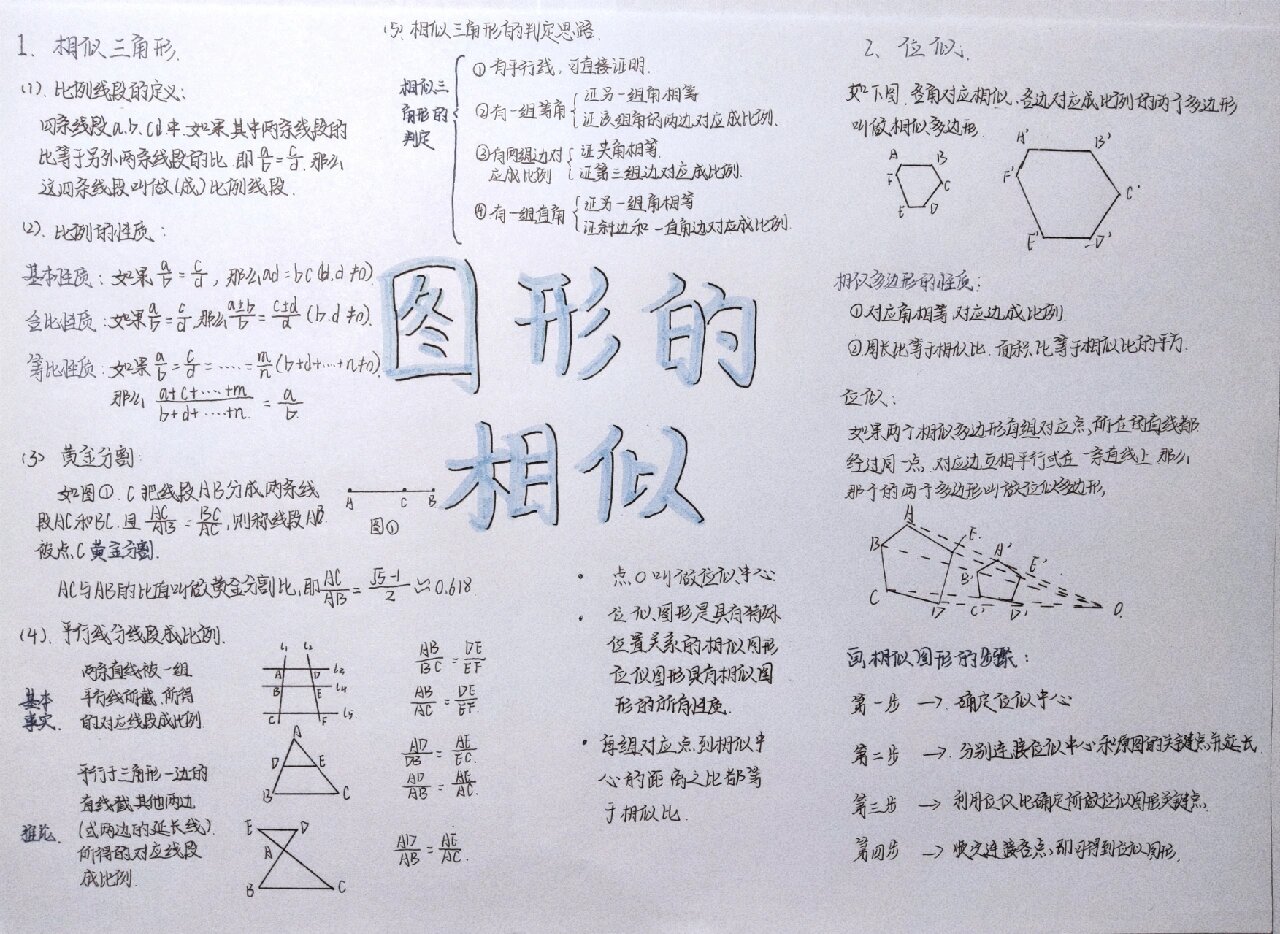 1. 相似三角形.
(1). 比例线段的定义:
四条线段a.b.cd中.如果其中两条线段的
比等于另外两条线段的比.即a/b=c/d.那么
这四条线段叫做(成)比例线段.
(2). 比例的性质:
基本性质:如果a/b=c/d,那么ad=bc(b.d≠0)
合比性质:如果a/b=c/d,那么a±b/b=c±d/d(b.d≠0).
等比性质:如果a/b=c/d=……=m/n(b+d+…+n≠0)
那么a+c+…+m/b+d+…+n=a/b.
(3) 黄金分割:
如图①.C把线段AB分成两条线
段AC和BC.且AC/AB=BC/AC,则称线段AB
被点C黄金分割.
A C B
图①
AC与AB的比值叫做黄金分割比,即AC/AB=√5-1/2≈0.618
(4).平行线分线段成比例.
基本
事实.
两条直线被一组
平行线所截,所得
的对应线段成比例
L₁ L₂
A D L₃
B E L₄
C F L₅
AB/BC=DE/EF
AB/AC=DE/EF.
推论.
平行于三角形一边的
直线截其他两边
(或两边的延长线).
所得的对应线段
成比例.
A
D E
B C
AD/DB=AE/EC.
AD/AB=AE/AC.
E D
A
B C
AD/AB=AE/AC.
(5).相似三角形的判定思路
相似三
角形的
判定
①有平行线,可直接证明.
②有一组等角
证另一组角相等
证该组角的两边对应成比例.
③有两组边对
应成比例
证夹角相等.
证第三组边对应成比例.
④有一组直角
证另一组角相等
证斜边和一直角边对应成比例.
图形的
相似
·点O叫做位似中心
·位似图形是具有特殊
位置关系的相似图形
位似图形具有相似图
形的所有性质.
·每组对应点到相似中
心的距离之比都等
于相似比.
2. 位似.
如下图.各角对应相似.各边对应成比例的两个多边形
叫做相似多边形.
A B
F C
E D
A' B'
F' C'
E' D'
相似多边形的性质:
①对应角相等 对应边成比例
②周长比等于相似比.面积比等于相似比的平方.
位似:
如果两个相似多边形每组对应点所在的直线都
经过同一点.对应边互相平行或在一条直线上.那么
那个的两个多边形叫做位似多边形.
A
B E.
A' E'
B'
C D C' D' O.
画相似图形的步骤:
第一步 → 确定位似中心
第二步 → 分别连接位似中心和原图的关键点并延长
第三步 → 利用位似比确定所做位似图形关键点.
第四步 → 顺次连接各点,即可得到位似图形.